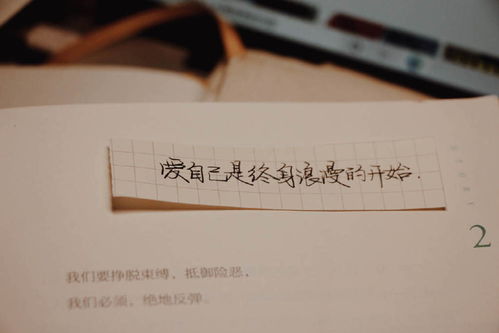 爱自己是终身浪漫的开始.
STORY
2
我们要挣脱束缚，抵御险恶，
我们必须，绝地反弹。